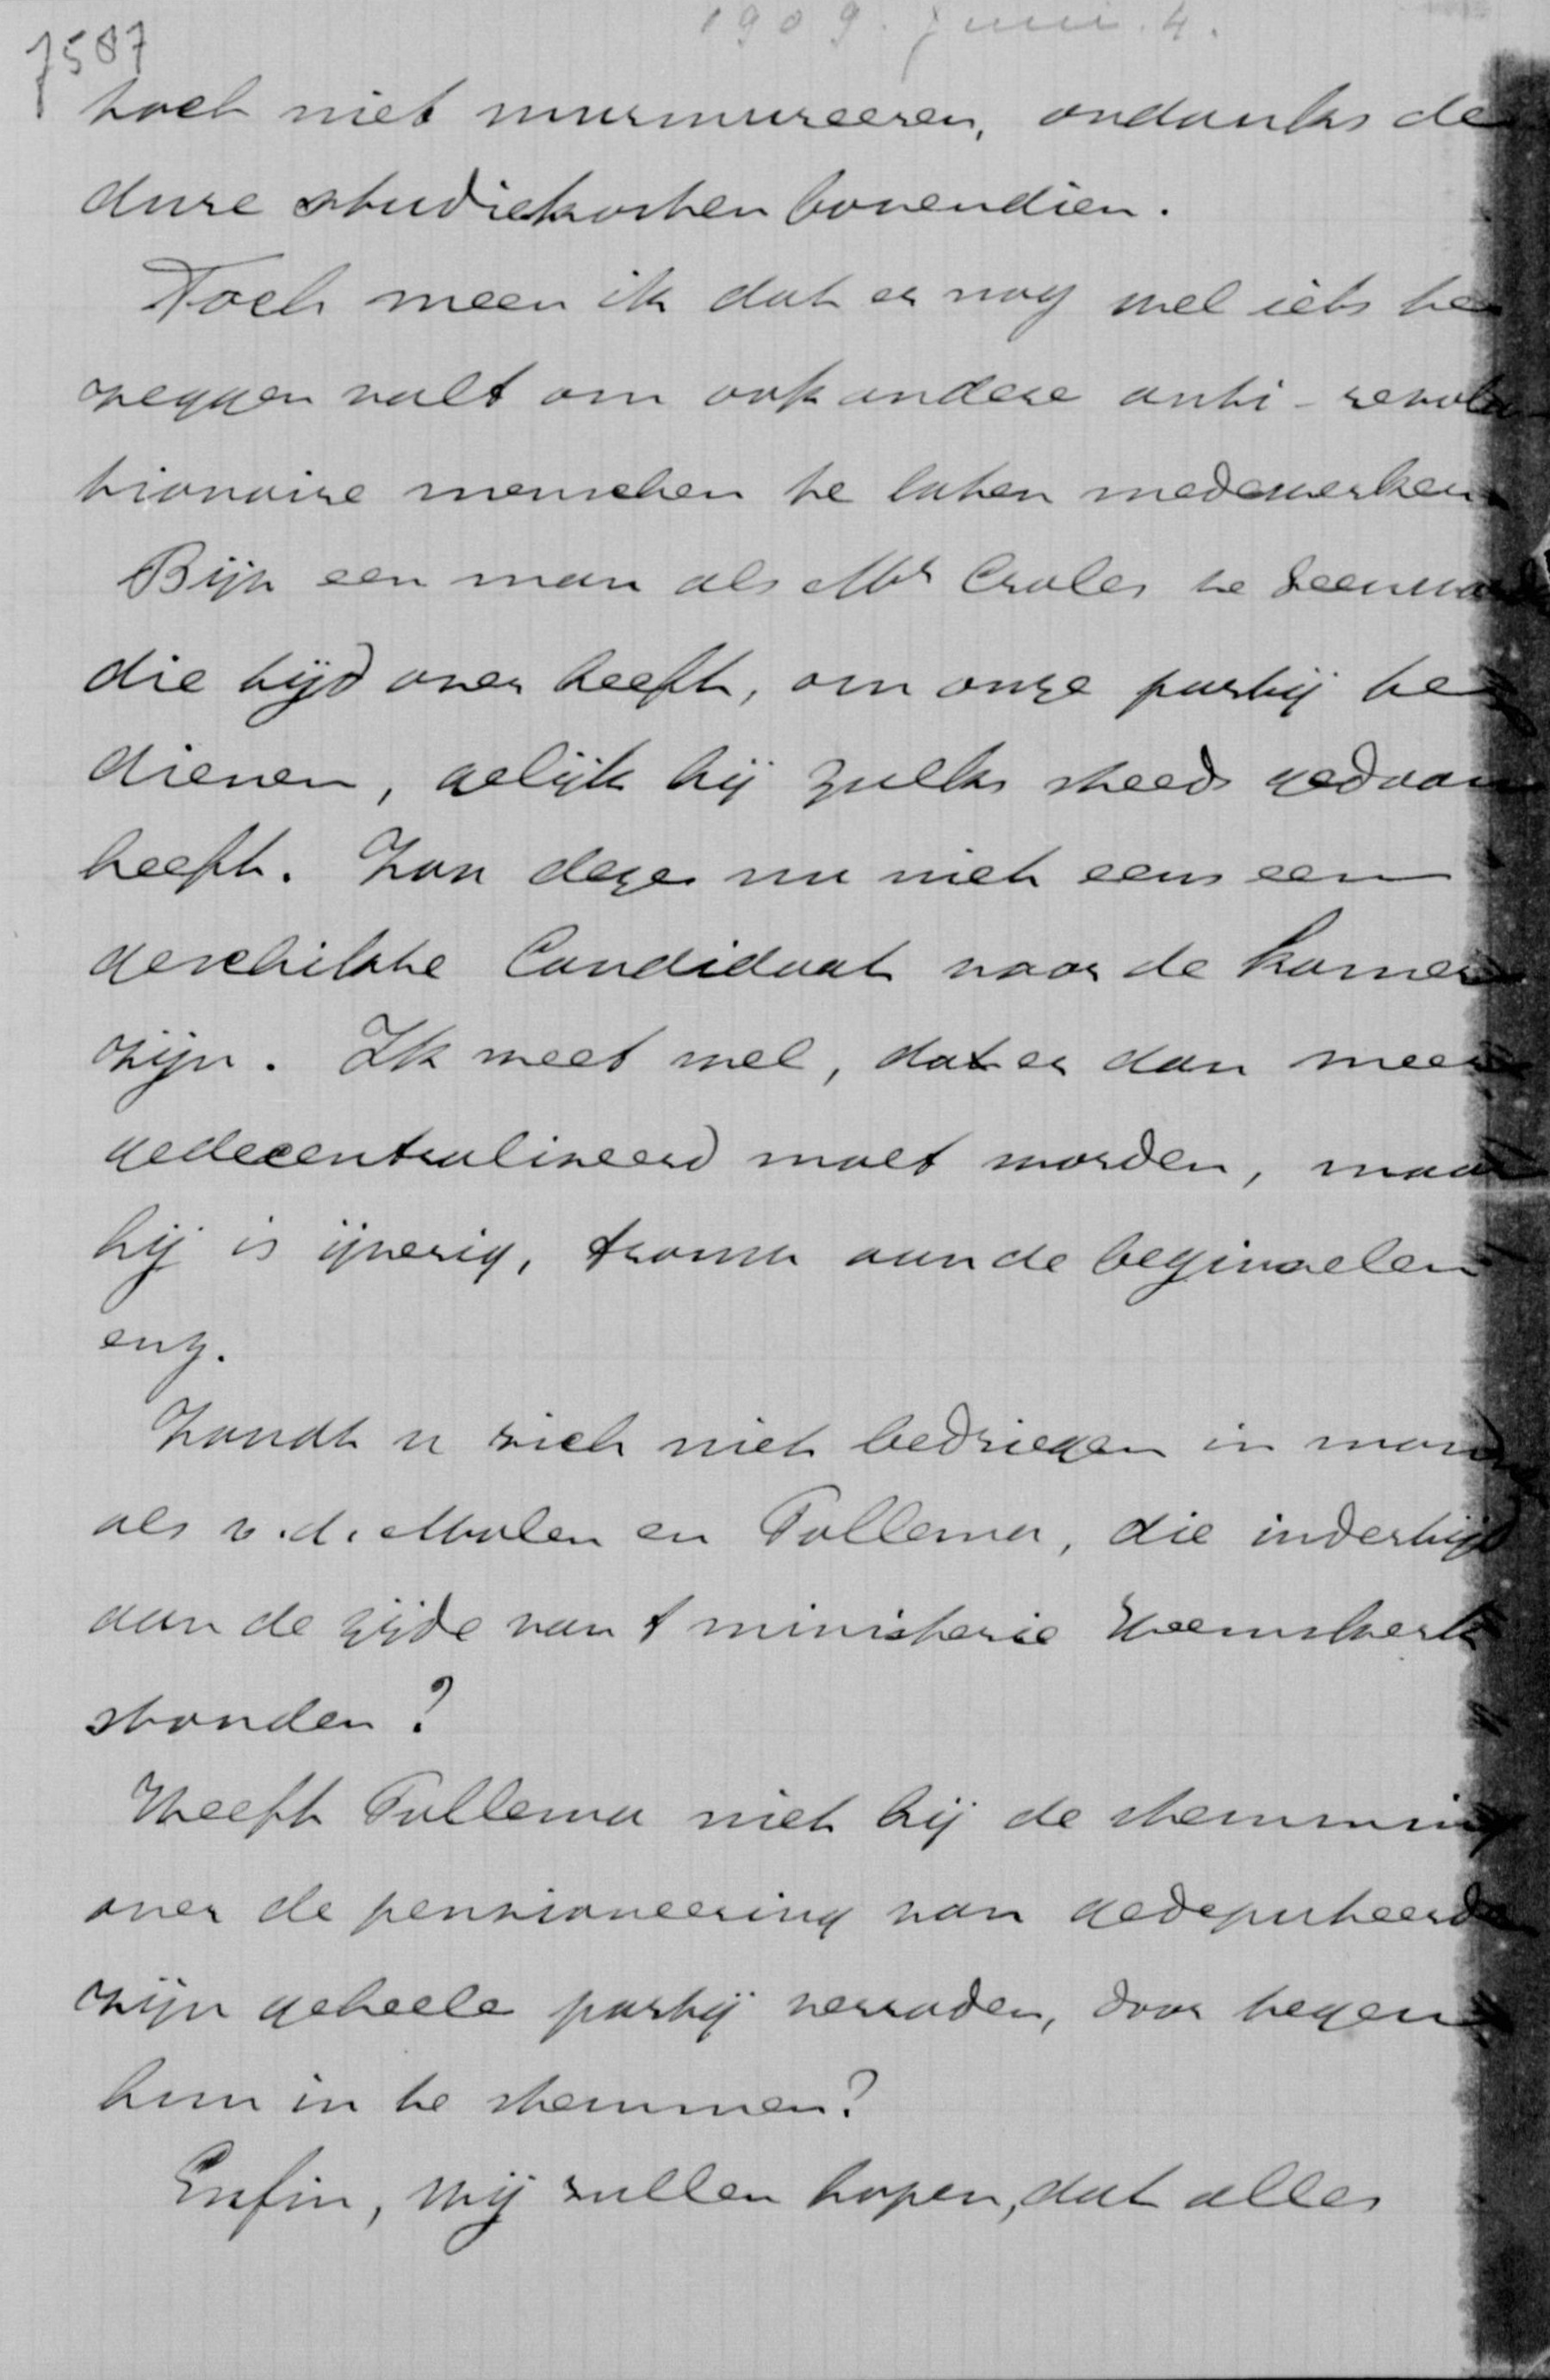 1909. Juni. 4.
7587
toch niet murmureeren, ondanks de
dure studiekosten bovendien.
Toch meen ik dat er nog wel iets te
zeggen valt om ook andere anti-revolu
tionaire menschen te laten medewerken
Bijv een man als Mr Croles te Leeuwar
die tijd over heeft, om onze partij te
dienen, gelijk hij zulks steeds gedaan
heeft. Zou deze nu niet eens een
geschikte Candidaat voor de Kamer
zijn. Ik weet wel, dat er dan meer
gedecentraliseerd moet worden, maar
hij is ijverig, trouw aan de beginselen
enz.
Zoudt u zich niet bedriegen in
als v.d. Molen en Pollema, die indertijd
aan de zijde van t ministerie Heemskerk
stonden?
Heeft Pollema niet bij de stemming
over de pensioneering van gedeputeerde
zijn geheele partij verraden, door tegen
hun in te stemmen?
Enfin, wij zullen hopen, dat alles